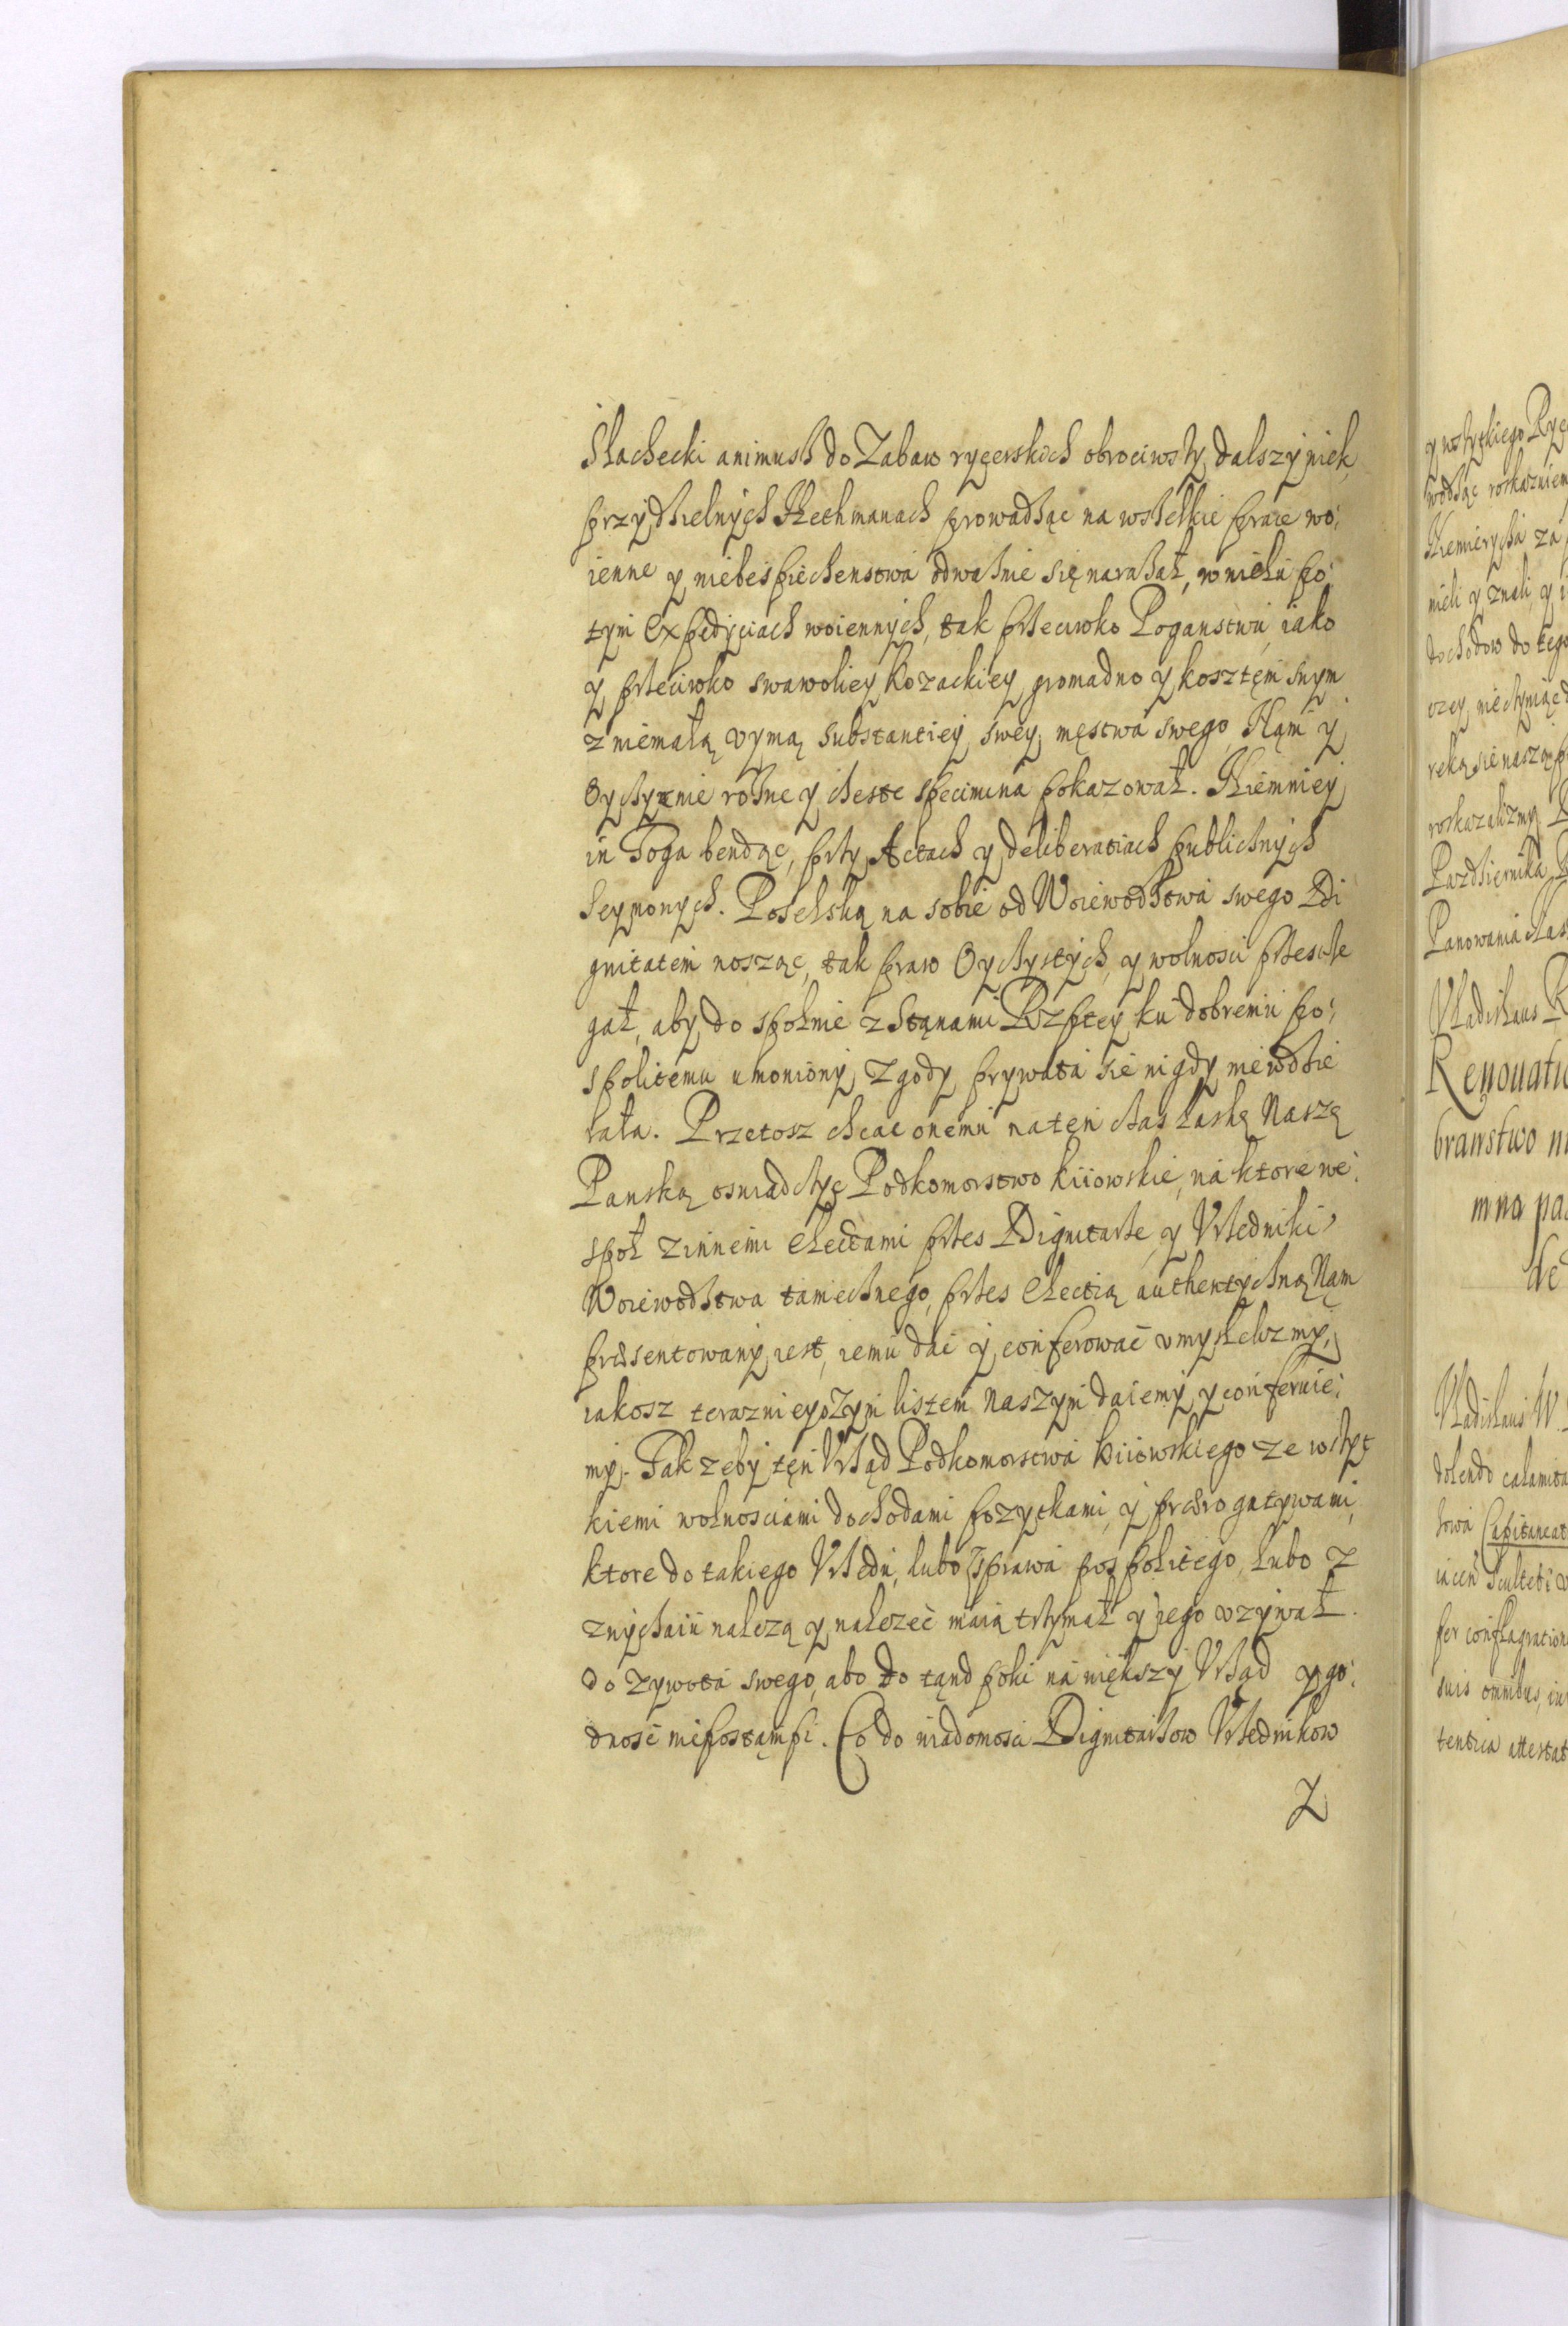 Slachecki animusz do Zabaw rycerskich obrociwszy, dalszy wiek,
przy dzielnych Hethmanach prowadząc na wszelkie prace wo:
ienne y niebespieczenstwa odważnie się narażał, w wielu po:
tym Expedyciach woiennych, tak przeciwko Poganstwu, iako
y przeciwko swawoliey Kozackiey, gromadno y kosztem swym
z niemałą vymą substantiey swey, męstwa swego Nam y
Oyczyznie rożne y częste specimina pokazował. Niemniey
in Toga bendąc, przy Actach y deliberatiach publicznych
Seymowych. Poselską na sobie od Woiewodztwa swego Di
gnitatem nosząc, tak praw Oyczystych, y wolnosci przestrze
gał, aby do społnie z Stanami Rzptey ku dobremu po:
spolitemu umowiony zgody prywata sie nigdy niewdzie
rała. Przetosz chcąc onemu na ten czas łaskę Naszą
Panską oswiadczyc Podkomorstwo kiiowskie, na ktore we:
społ z innemi electami przes Dignitarze, y Vrzedniki
Woiewodztwa tamecznego, przes electią authentyczną Nam
præsentowany iest, iemu dać y conferować vmyslelizmy,
iakosz terazniejszym listem Naszym daiemy y conferuie:
my. Tak zeby ten Vrząd Podkomorstwa kiiowskiego ze wszyt
kiemi wolnosciami dochodami pozytkami, y prærogatywami,
ktore do takiego Vrzedu, lubo z prawa pospolitego, lubo z
zwyczaiu należą y należeć maią trzymał y iego vzywał.
do zywota swego, abo do tąnd poki na większy Vrząd y go:
dność niepostąmpi. Co do wiadomosci Dignitarzow Vrzednikow
Z
y wszytkiego Ryc
wodząc roskazuiem
Niemierycza za
mieli y znali, y i
dochodow do tego
czey nieczyniąc d
ręką sie naszą p
roskazalizmy
Pazdziernika
Panowania
Vladislaus R
Renouatio
branstwo
mna pa
de
Vladislaus W
dolendo calamita
Capitaneat
Sculteti
per conflagration
suis omnibus, in
tentica attestat